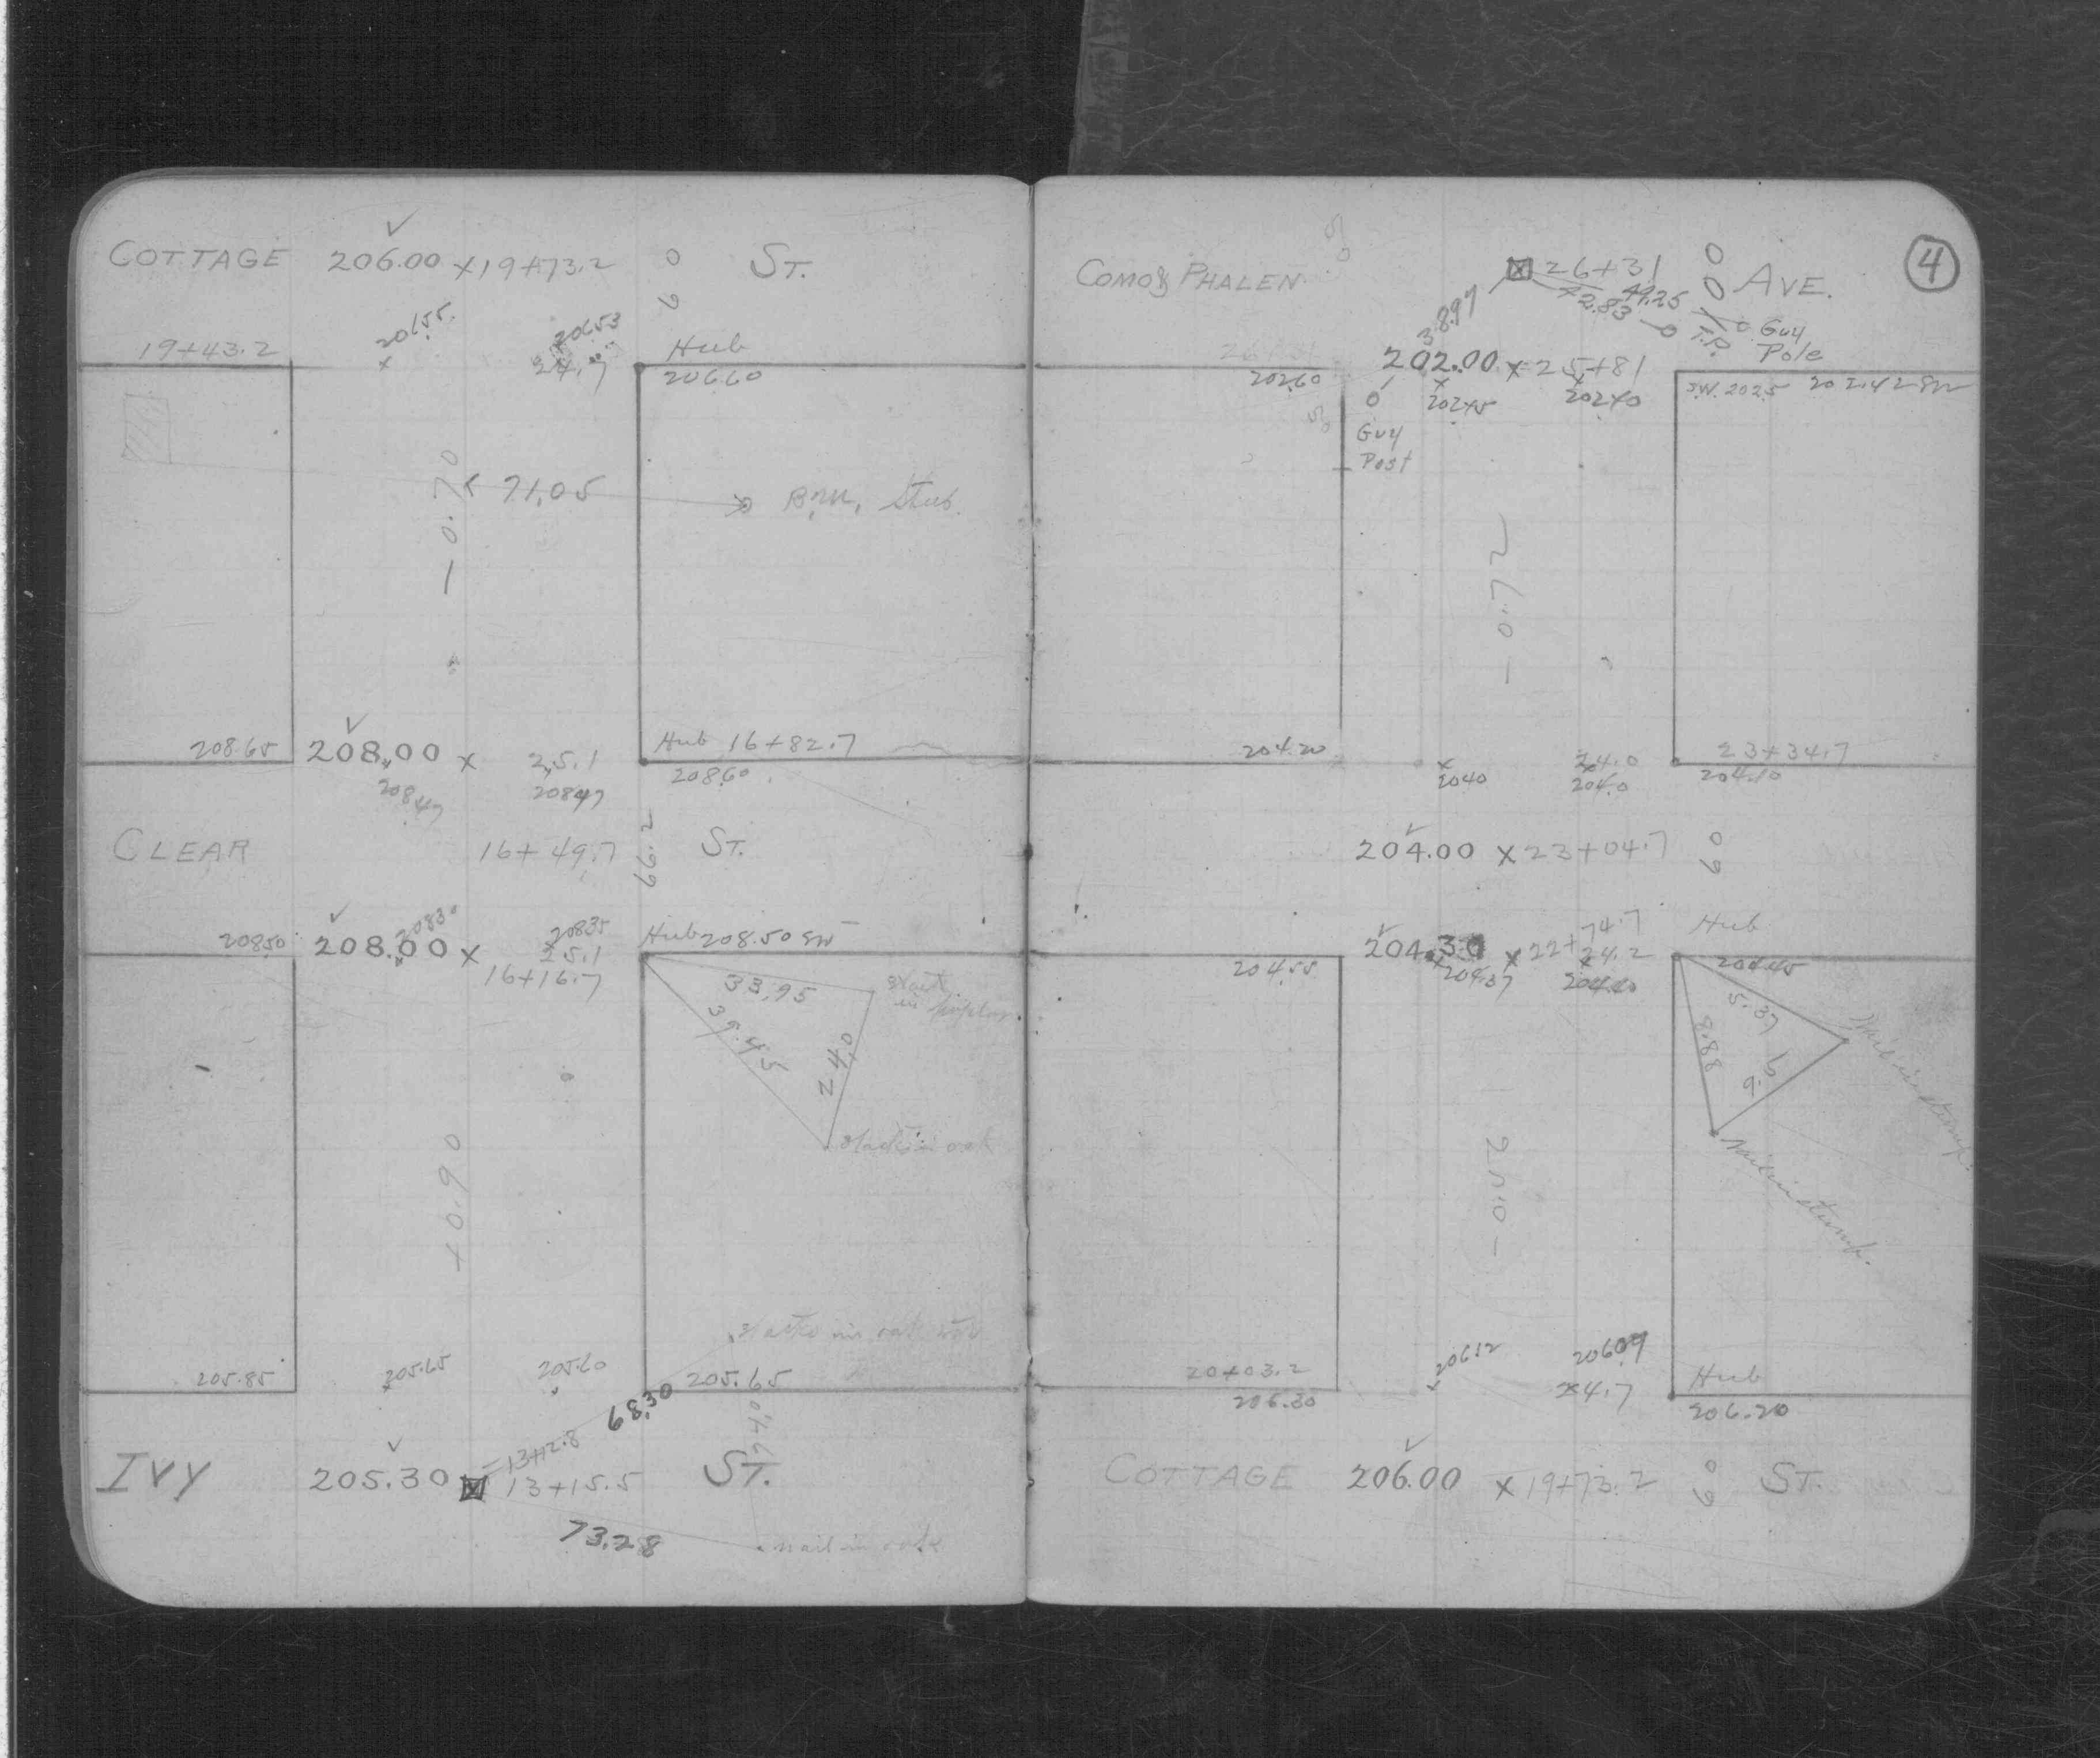 COTTAGE 206.00 x 19+73.2 60 ST.
20655. 20653
19+43.2 24.7 Hub
206.60
-0.70
71.05 B.M. Stub.
208.65 208.00 x 25.1 Hub 16+82.7
20847 20847 208.60
CLEAR 16+49.7 66.2 ST.
20830 20835
208.50 208.00 x 25.1 Hub 208.50 SW
16+16.7
33.95
39.45
24.0
+0.90
205.85 205.65 205.60 205.65
68.30
=13+12.8
IVY 205.30 13+15.5 ST.
73.28 nail in oak
4
COMO & PHALEN 26+31 100 AVE.
42.83 49.25
38.97
T.P. Guy Pole
202.00 x 25+81
202.60 20245 20240 S.W. 202.5 202.42 SW
Guy
Post
-0.72
204.20 24.0 23+34.7
2040 204.0 204.10
204.00 x 23+04.7 60
74.7 Hub
204.30 x 22+ 24.2
204.55 204.37 204.45
5.37
8.88
9.6
Nail in stump.
Nail in stump.
20612 20609
20+03.2 24.7 Hub
206.30 206.20
COTTAGE 206.00 x 19+73.2 60 ST.